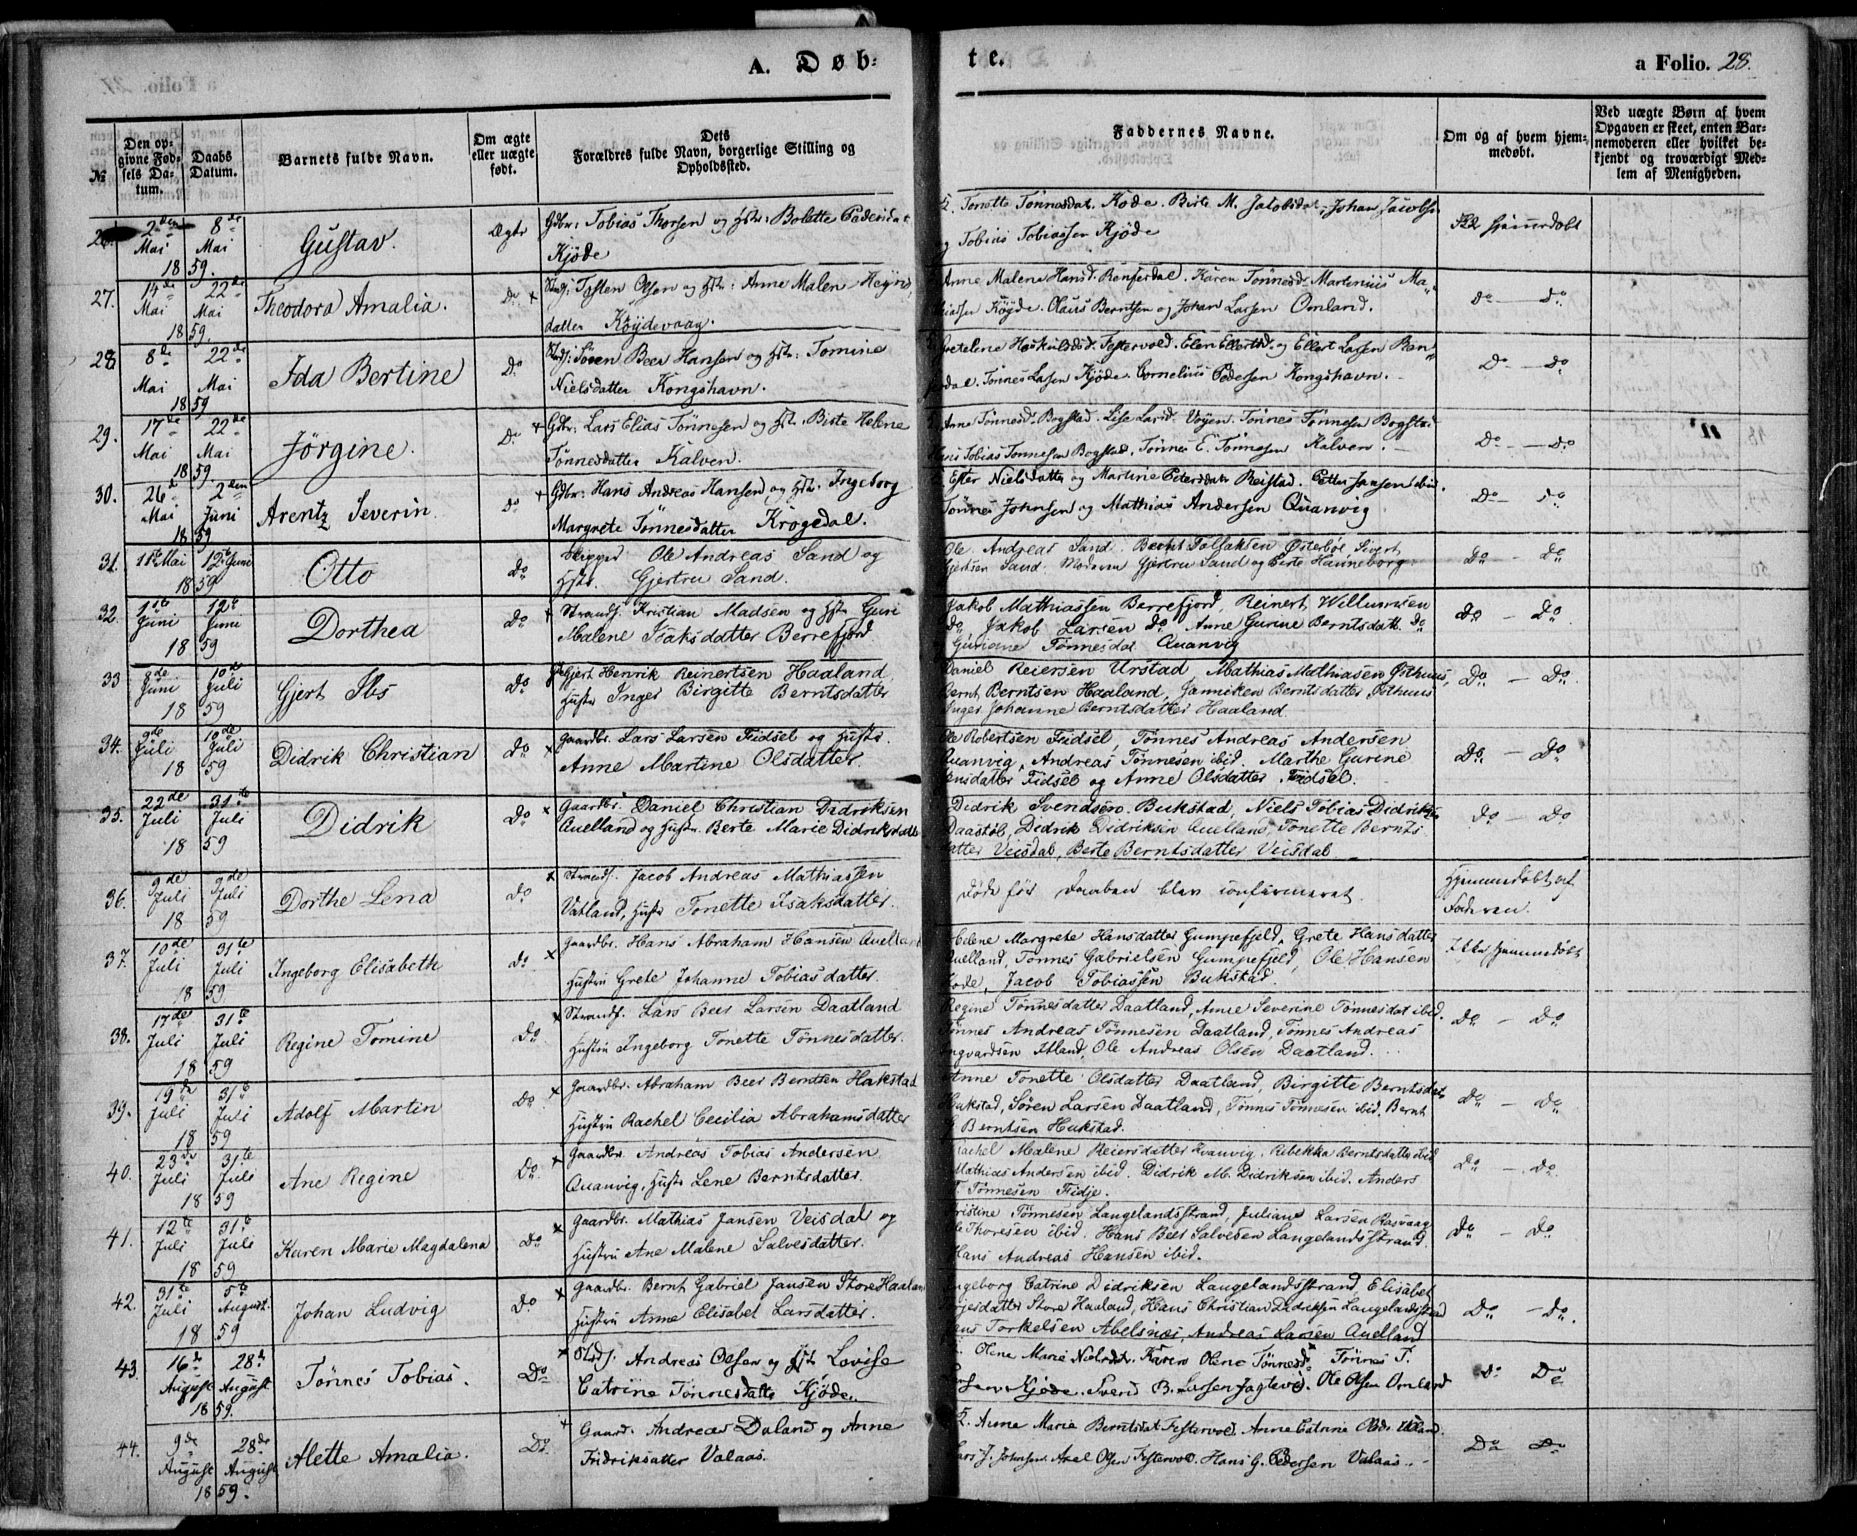 A. Døb-
te.
a Folio. 28.
№
Den opgivne Fødsels Datum.
Daabs Datum.
Barnets fulde Navn.
Om ægte eller uægte født.
Dets
Forældres fulde Navn, borgerlige Stilling og
Opholdssted.
Faddernes Navne.
Om og af hvem hjemmedøbt.
Ved uægte Børn af hvem
Opgaven er skeet, enten Bar-
nemoderen eller hvilket be-
kjendt og troværdigt Med-
lem af Menigheden.
26. 2den Mai 8de Mai 1859. Gustav. Ægte
Gdbr: Tobias Thorsen og Hst: Bolette
Kjøde
Tonette Tønnesdat. Køde. Birte M. Jakobsdat. Johan Jacobsen
og Tobias Tobiassen Kjøde
hjemmedøbt
27. 14de Mai 22de Mai 1859 Theodora Amalia. Do
Tosten Olsen og Hst: Anne Malen
datter Køydevaag.
Anne Malene Hansd. Rønsesdal. Karen Tønnesd. Martinius Ma-
thiassen Køyde. Olaus Berntsen og Johan Larsen Omland.
Do — Do
28 8de Mai 22de Mai 1859 Ida Bertine Do
Søren Beer Hansen og Hst: Tomine
Nielsdatter Kongshavn.
Festervold. Elen Ellertsd. og Ellert Larsen
Tønnes Larsen Kjøde. Cornelius Pedersen Kongshavn.
Do — Do
29. 17de Mai 22de Mai 1859 Jørgine. Do
Gdbr: Lars Elias Tønnesen og Hst. Birte Helene
Tønnesdatter Kalven.
Anne Tønnesd. Bogstad. Lise Larsd. Vøyen. Tønnes Tønnesen Bogstad
Hans Tobias Tønnesen Bogstad. Tønnes E. Tønnesen Kalven.
Do — Do
30. 26de Mai 2den Juni 1859 Arentz Severin. Do
Gdbr: Hans Andreas Hansen og Hst. Ingeborg
Margrete Tønnesdatter Krogedal.
Ester Nielsdatter og Martine Petersdatr Reistad. Petter Jansen ibid.
Tønnes Johnsen og Mathias Andersen Quanvig
Do — Do
31. 11te Mai 12te Juni 1859 Otto Do
Skipper Ole Andreas Sand og
Hstr. Gjertru Sand.
Ole Andreas Sand. Bernt Østerbøe Sivert
Gjertsen Sand. Moderen Gjertru Sand og Berte Hanneborg
Do — Do
32. 1ste Juni 12te Juni 1859 Dorthea Do
Strands. Kristian Madsen og Hst Guri
Malene Isaksdatter Berrefjord
Jakob Mathiassen Berrefjord, Reinert Willumsen
Do, Jakob Larsen do Anne Gurine Berntsdatt. do
Guriane Tønnesdat Quanvig
Do — Do
33 8de Juni 10de Juli 1859 Gjert Ibs Do
Gjert Henrik Reinertsen Haaland,
Hustr Inger Birgitte Berntsdatter
Daniel Reiersen Urstad Mathias Mathiasen Østhuus,
Bernt Berntsen Haaland, Janniken Berntsdatter Østhuus
Inger Johanne Berntsdatter Haaland
Do — Do.
34. 9de Juli 10de Juli 1859 Didrik Christian Do
Gaardbr. Lars Larsen Fidsel og Hustr.
Anne Martine Olsdatter.
Ole Robertsen Fidsel, Tønnes Andreas Andersen
Quanvig, Andreas Tønnesen ibid. Marthe Gurine
Jensdatter Fidsel og Anne Olsdatter Fidsel.
Do — Do
35. 22de Juli 31te Juli 1859 Didrik Do
Gaardbr. Daniel Christian Didriksen
Auelland og Hustr. Berte Marie Didriksdatter
Didrik Svendsen Bukstad, Niels Tobias Didriksen
Daastøl, Didrik Didriksen Auelland, Tonette Bernts
datter Veisdal, Berte Berntsdatter Veisdal
Do — Do
36. 9de Juli 9de Juli 1859 Dorthe Lena Do
Strands. Jacob Andreas Mathiassen
Vatland, Hustr Tonette Isaksdatter.
Døde før Daaben blev confirmeret.
Hjemmedøbt af
Faderen.
37. 10de Juli 31te Juli 1859 Ingeborg Elisabeth Do
Gaardbr. Hans Abraham Hansen Auelland
Hustru Grete Johanne Tobiasdatter.
Helene Margrete Hansdatter Gumpefjeld, Grete Hansdatter
Auelland, Tønnes Gabrielsen Gumpefjeld, Ole Hansen
Jacob Tobiassen Bukstad.
Ikke hjemmedøbt
38. 17de Juli 31te Juli 1859 Regine Tomine Do
Strands. Lars Beer Larsen Daatland
Hustru Ingeborg Tonette Tønnesdatter.
Regine Tønnesdatter Daatland, Anne Severine Tønnesdat ibid.
Tønnes Andreas Tønnesen Daatland, Tønnes Andreas
Ingvardsen Itland, Ole Andreas Olsen Daatland.
Do — Do
39. 19de Juli 31te Juli 1859 Adolf Martin Do
Gaardbr. Abraham Beer Berntsen Hukstad
Hustru Rachel Cecilia Abrahamsdatter
Anne Tonette Olsdatter Daatland, Birgitte Berntsdatr
Hukstad, Søren Larsen Daatland, Tønnes Tønnesen ibid. Bernt
Berntsen Hukstad.
Do — Do
40. 23de Juli 31te Juli 1859 Ane Regine Do
Gaardbr. Andreas Tobias Andersen
Quanvig, Hustr Lene Berntsdatter.
Rachel Malene Reiersdatter Quanvig, Rebekka Berntsdatter ibid
Mathias Andersen ibid. Didrik M. Didriksen ibid. Anders
T. Tønnesen Fidje.
Do — Do
41. 12te Juli 31te Juli 1859 Karen Marie Magdalena Do
Gaardbr. Mathias Jansen Veisdal og
Hustru Ane Malene Salvesdatter.
Kristine Tønnesen Langelandsstrand, Juliane Larsen Rasvaag
Ole Thoresen ibid. Hans Beer Salvesen Langelandsstrand.
Hans Andreas Hansen ibid.
Do — Do
42. 31te Juli 5te August. 1859 Johan Ludvig Do
Gaardbr. Bernt Gabriel Jansen Store Haaland
Hustru Anne Elisabet Larsdatter.
Ingeborg Catrine Didriksen Langelandsstrand, Elisabet
Store Haaland, Hans Christian Didriksen Langelandsstrand
Torkelsen Abelsnæs, Andreas Larsen Auelland
Do — Do.
43. 16de August 28de August 1859. Tønnes Tobias. Do
Andreas Olsen og Hst. Lovise
Catrine Tønnesdatter Kjøde.
Olene Marie Nielsdt. Karen Olene Tønnesd. Tønnes T.
Kjøde. Svend B. Larsen Ole Olsen Omland
Do Do
44. 9de August 28de August 1859. Alette Amalia. Do
Gaard. Andreas Daland og Anne
Fridriksdatter Valaas.
Anne Marie Berntsdat Festervol. Anne Catrine
Lars J. Johnsen. Axel Olsen Festervold. Hans G. Pedersen Valaas.
Do Do